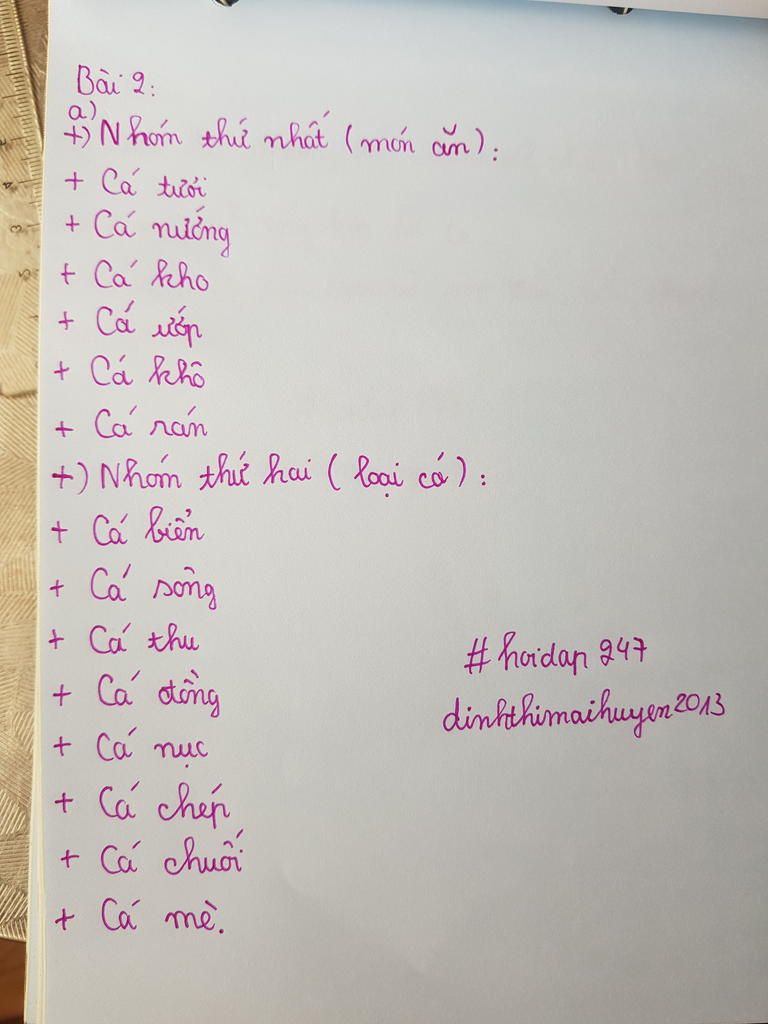 Bài 2:
a)
+) Nhóm thứ nhất (món ăn):
+ Cá tươi
+ Cá nướng
+ Cá kho
+ Cá ướp
+ Cá khô
+ Cá rán
+) Nhóm thứ hai (loại cá):
+ Cá biển
+ Cá sông
+ Cá thu
+ Cá đồng
+ Cá nục
+ Cá chép
+ Cá chuối
+ Cá mè.
#hoidap 247
dinhthimaihuyen2013